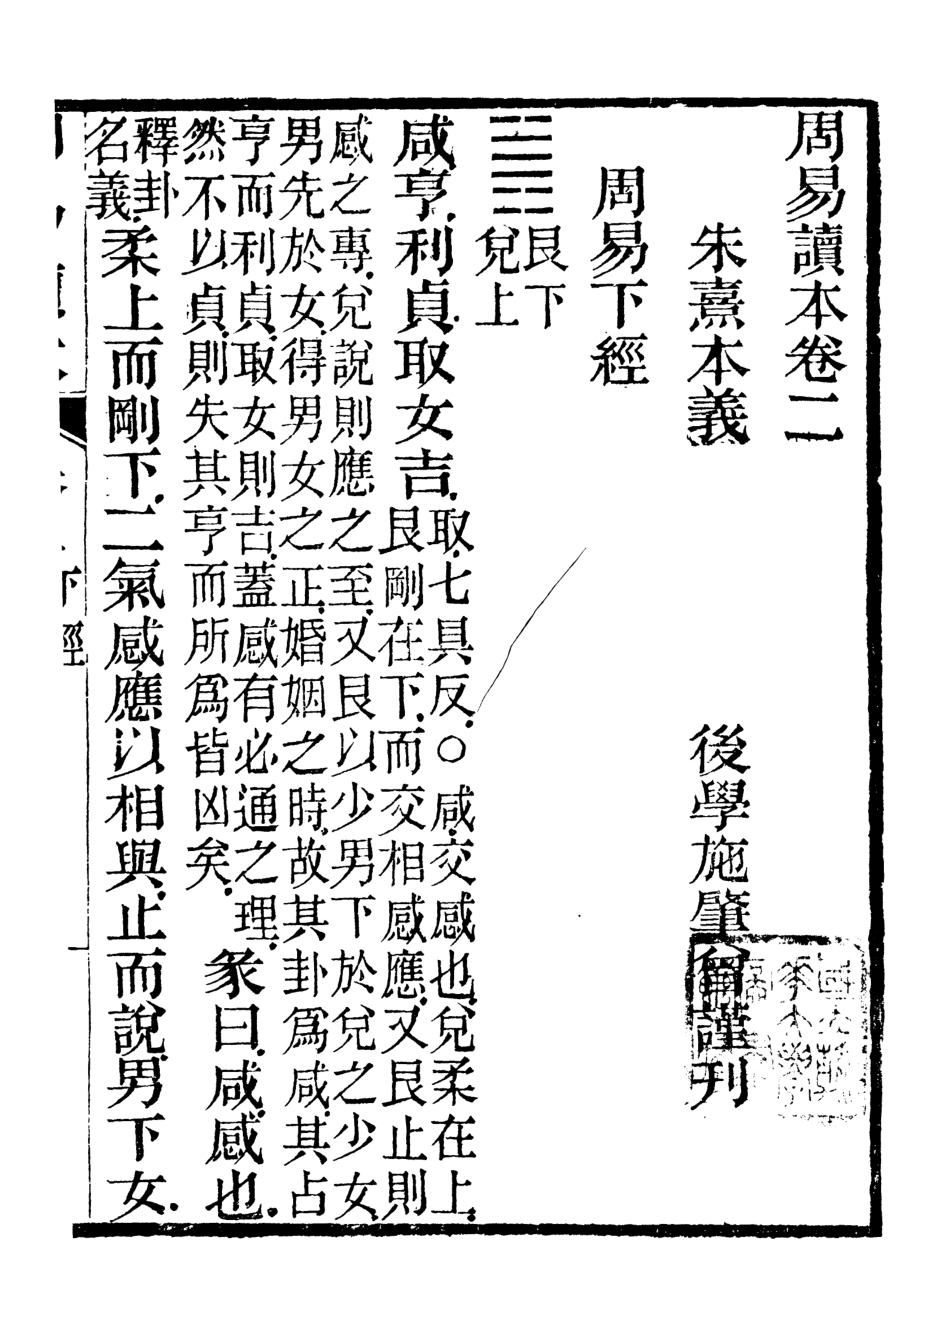 周易讀本卷二
朱熹本義　後學施肇曾謹刊
周易下經
䷞艮下
兌上
咸亨.利貞.取女吉.取.七具反.○咸.交感也.兌柔在上.
艮剛在下.而交相感應.又艮止則
感之專.兌說則應之至.又艮以少男下於兌之少女.
男先於女.得男女之正.婚姻之時.故其卦爲咸.其占
亨而利貞.取女則吉.蓋感有必通之理.
然不以貞.則失其亨而所爲皆凶矣.彖曰.咸.感也.
釋卦
名義.柔上而剛下.二氣感應以相與.止而說.男下女.
下經
一